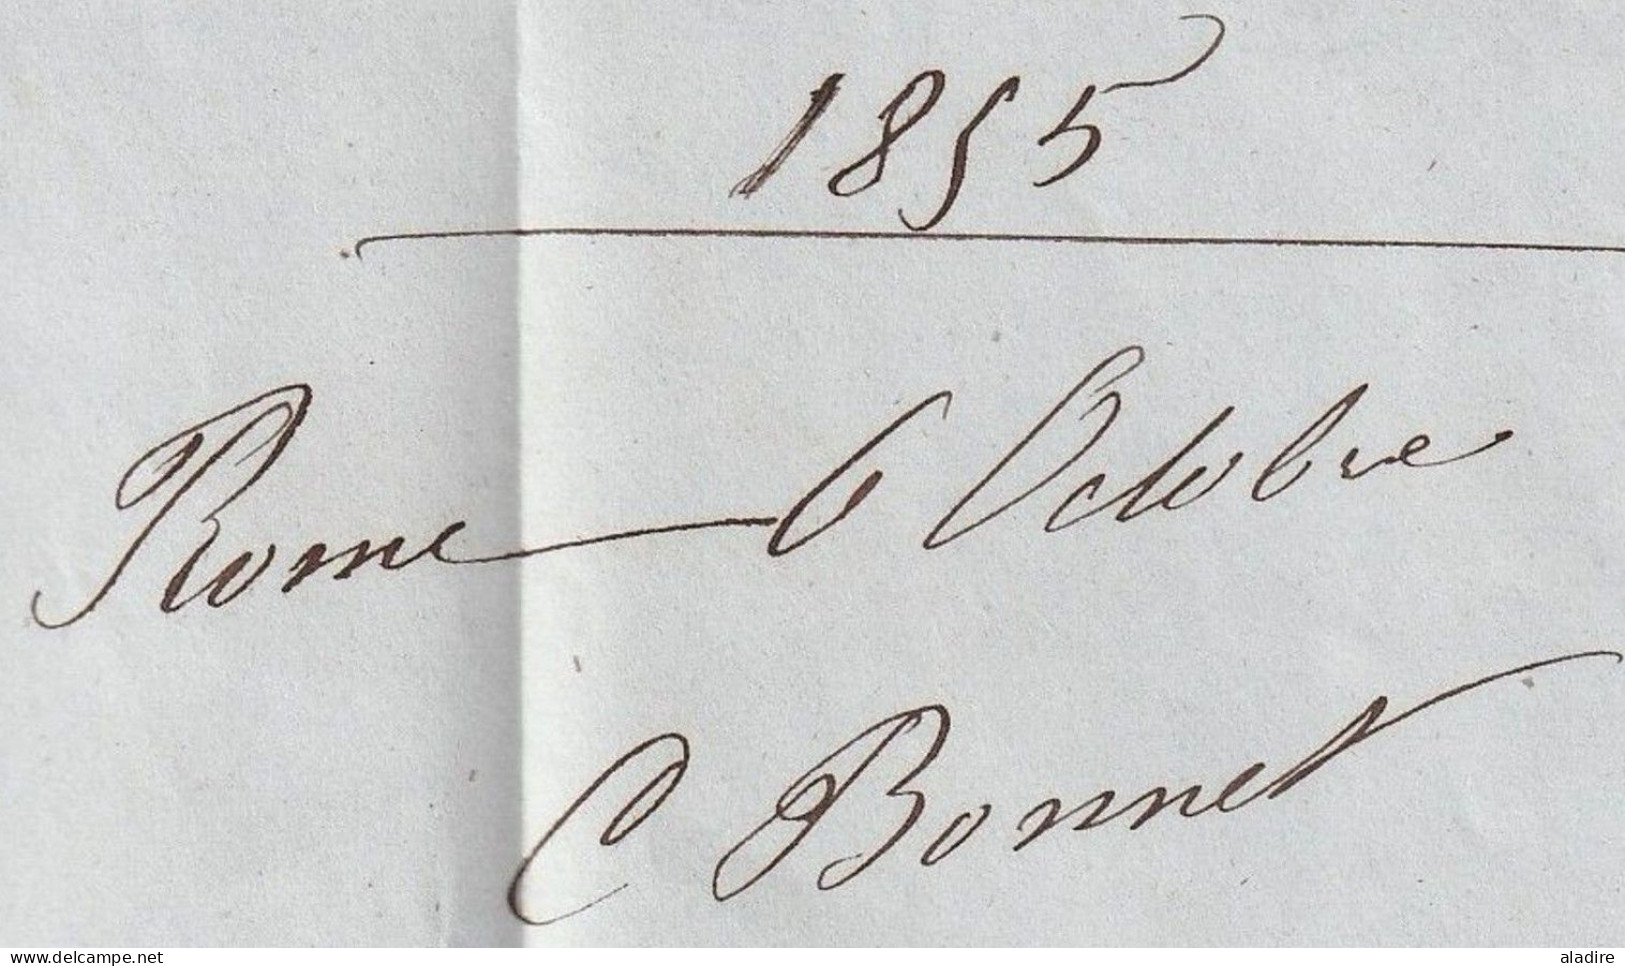 1855
Rome 6 Octobre
C Bonnet
www.delcampe.net
aladire